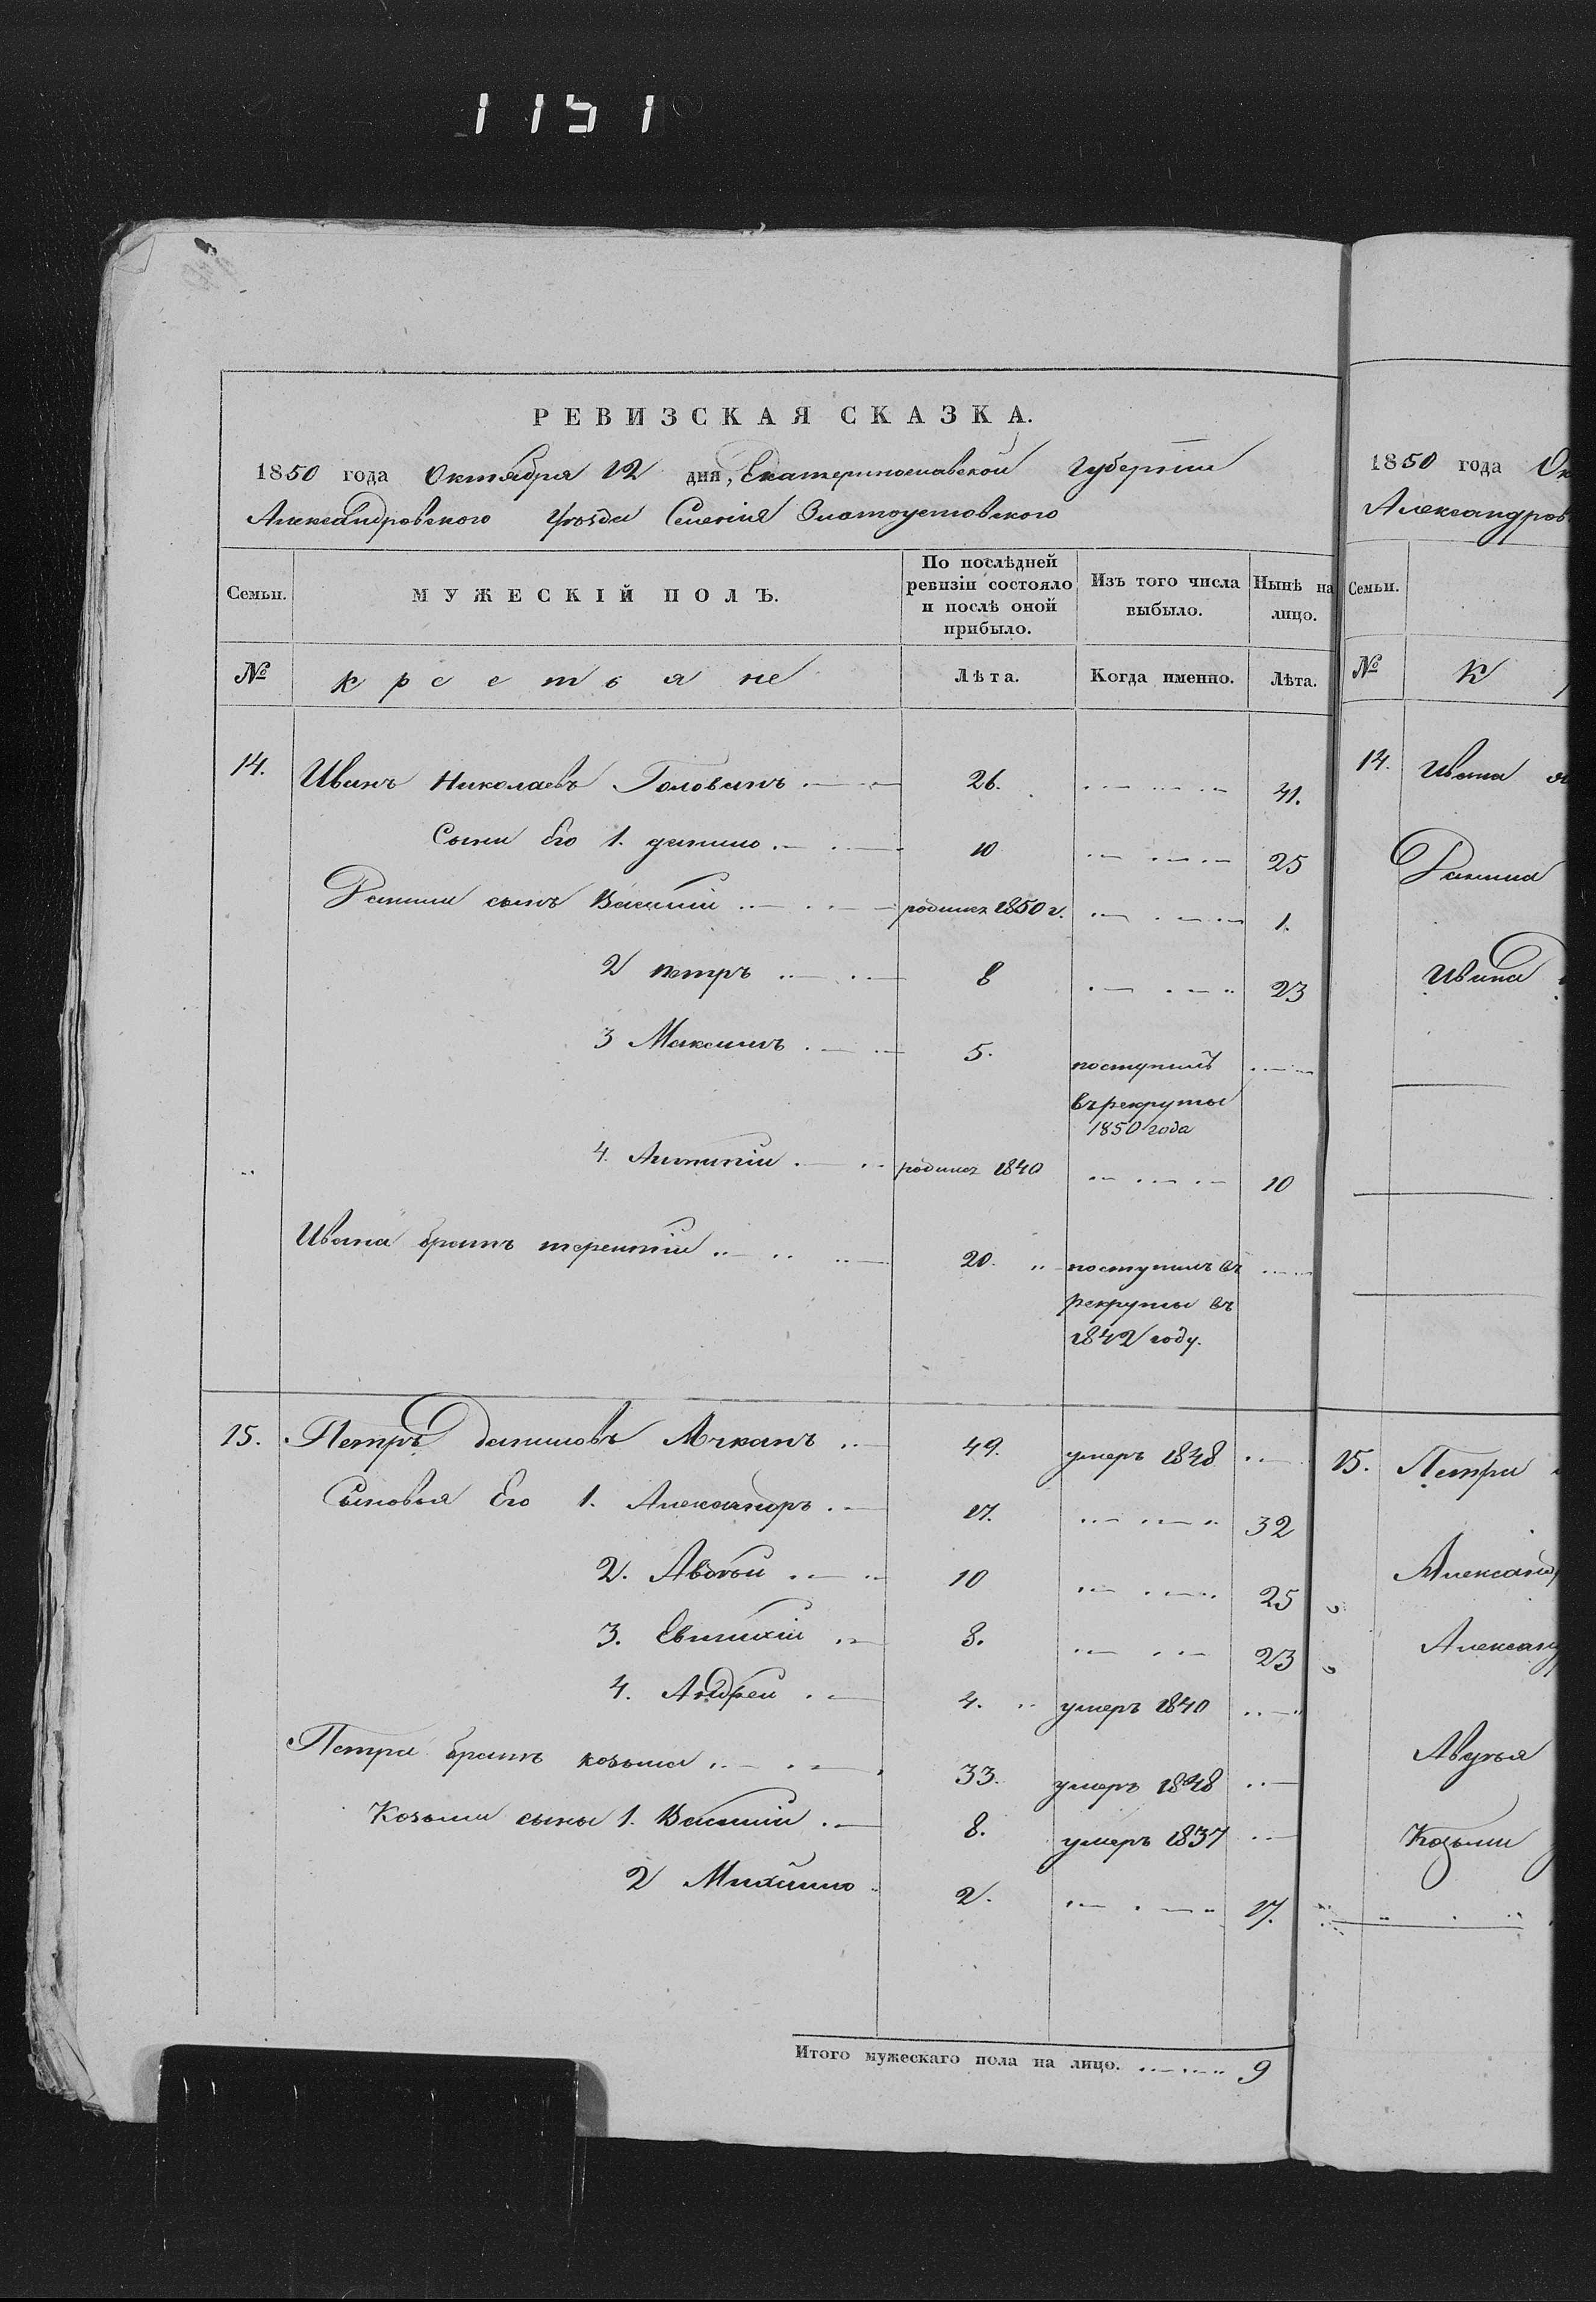 1151
РЕВИЗСКАЯ СКАЗКА.
1850 года Октября 12 дня, Екатеринославской Губернии
Александровского Уѣзда Селенія Златоустовского
Семьи.
МУЖЕСКІЙ ПОЛЪ.
По послѣдней ревизіи состояло и послѣ оной прибыло.
Изъ того числа выбыло.
Нынѣ на лицо.
№
крестьяне
Лѣта.
Когда именно.
Лѣта.
14. Иванъ Николаевъ Головинъ 26. 41.
Сыни Его 1. данило 10 25
Данили сынъ Василій родился 1850 г. 1.
2 петръ 8 23
3 Максимъ 5. поступилъ
въ рекруты
1850 года
4. родился 1840 10
Ивана братъ терентій 20. поступилъ въ
рекруты въ
1842 году.
15. Петръ даниловъ 49. умеръ 1848
Сыновья Его 1. Александръ 17. 32
2. Авдѣй 10 25
3. 8. 23
4. Андрей 4. умеръ 1840
Петра братъ козьма 33. умеръ 1848
Козьми сыны 1. Василій 8. умеръ 1837
2 Михайло 2. 17.
Итого мужескаго пола на лицо. 9
1850 года Ок
Александров
Семьи.
№
К
14. Ивана
Данила
Ивана
15. Петра
Александ
Александ
Авдѣя
Козьми